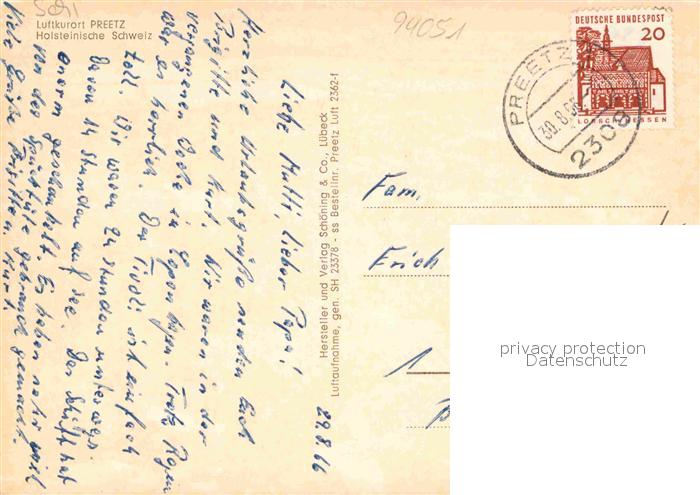 Luftkurort PREETZ
Holsteinische Schweiz
94051
DEUTSCHE BUNDESPOST
20
LORSCH/HESSEN
PREETZ
30.8.66
2308
29.8.66
Liebe Mutti, lieber Papa!
Herzliche Urlaubsgrüße senden Euch
Brigitte und Kurt. Wir waren in der
vergangenen Woche in Kopenhagen. Trotz Regen
war es herrlich. Der Tivoli ist einfach
toll. Wir waren 24 Stunden unterwegs
davon 14 Stunden auf See. Das Schiff hat
enorm geschaukelt. Es haben sehr viel
von der Spucktüte gebrauch gemacht.
Viele Grüße Brigitte Kurt.
Hersteller und Verlag Schöning & Co., Lübeck
Luftaufnahme, gen. SH 23378 · ss Bestellnr. Preetz Luft 2362-f
Fam.
Erich
1
privacy protection
Datenschutz